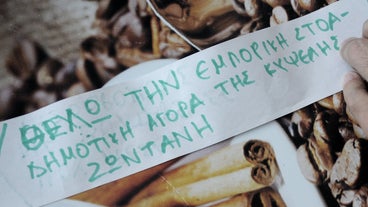 ΘΕΛΩ ΤΗΝ ΕΜΠΟΡΙΚΗ ΣΤΟΑ-
ΔΗΜΟΤΙΚΗ ΑΓΟΡΑ ΤΗΣ ΚΥΨΕΛΗΣ
ΖΩΝΤΑΝΗ